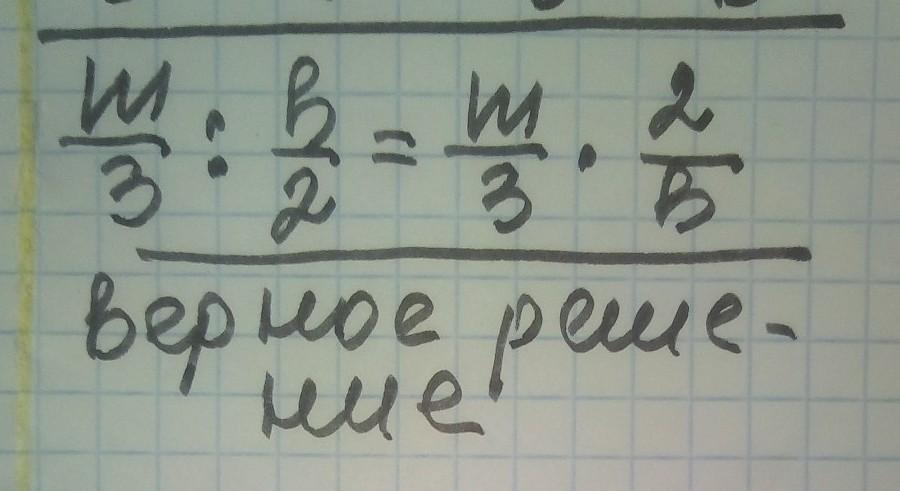 m/3 : B/2 = m/3 · 2/B
верное реше-
ние